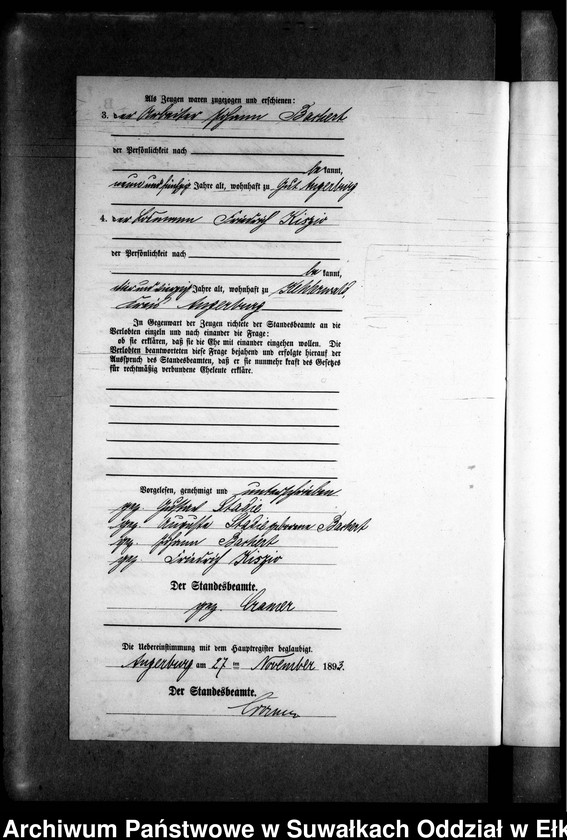 Als Zeugen waren zugezogen und erschienen:
3. der Arbeiter Johann Backert
der Persönlichkeit nach
be kannt,
neunundfünfzig Jahre alt, wohnhaft zu Gut Angerburg
4. der Friedrich Kiszio
der Persönlichkeit nach
be kannt,
Jahre alt, wohnhaft zu
Kreis Angerburg
In Gegenwart der Zeugen richtete der Standesbeamte an die
Verlobten einzeln und nach einander die Frage:
ob sie erklären, daß sie die Ehe mit einander eingehen wollen. Die
Verlobten beantworteten diese Frage bejahend und erfolgte hierauf der
Ausspruch des Standesbeamten, daß er sie nunmehr kraft des Gesetzes
für rechtmäßig verbundene Eheleute erkläre.
Vorgelesen, genehmigt und unterschrieben
gez. Gustav Stadie
gez. Auguste Stadie geborene Backert
gez. Johann Backert
gez. Friedrich Kiszio
Der Standesbeamte.
gez. Cramer
Die Uebereinstimmung mit dem Hauptregister beglaubigt.
Angerburg am 27 ten November 1893.
Der Standesbeamte.
Cramer
Archiwum Państwowe w Suwałkach Oddział w Ełk